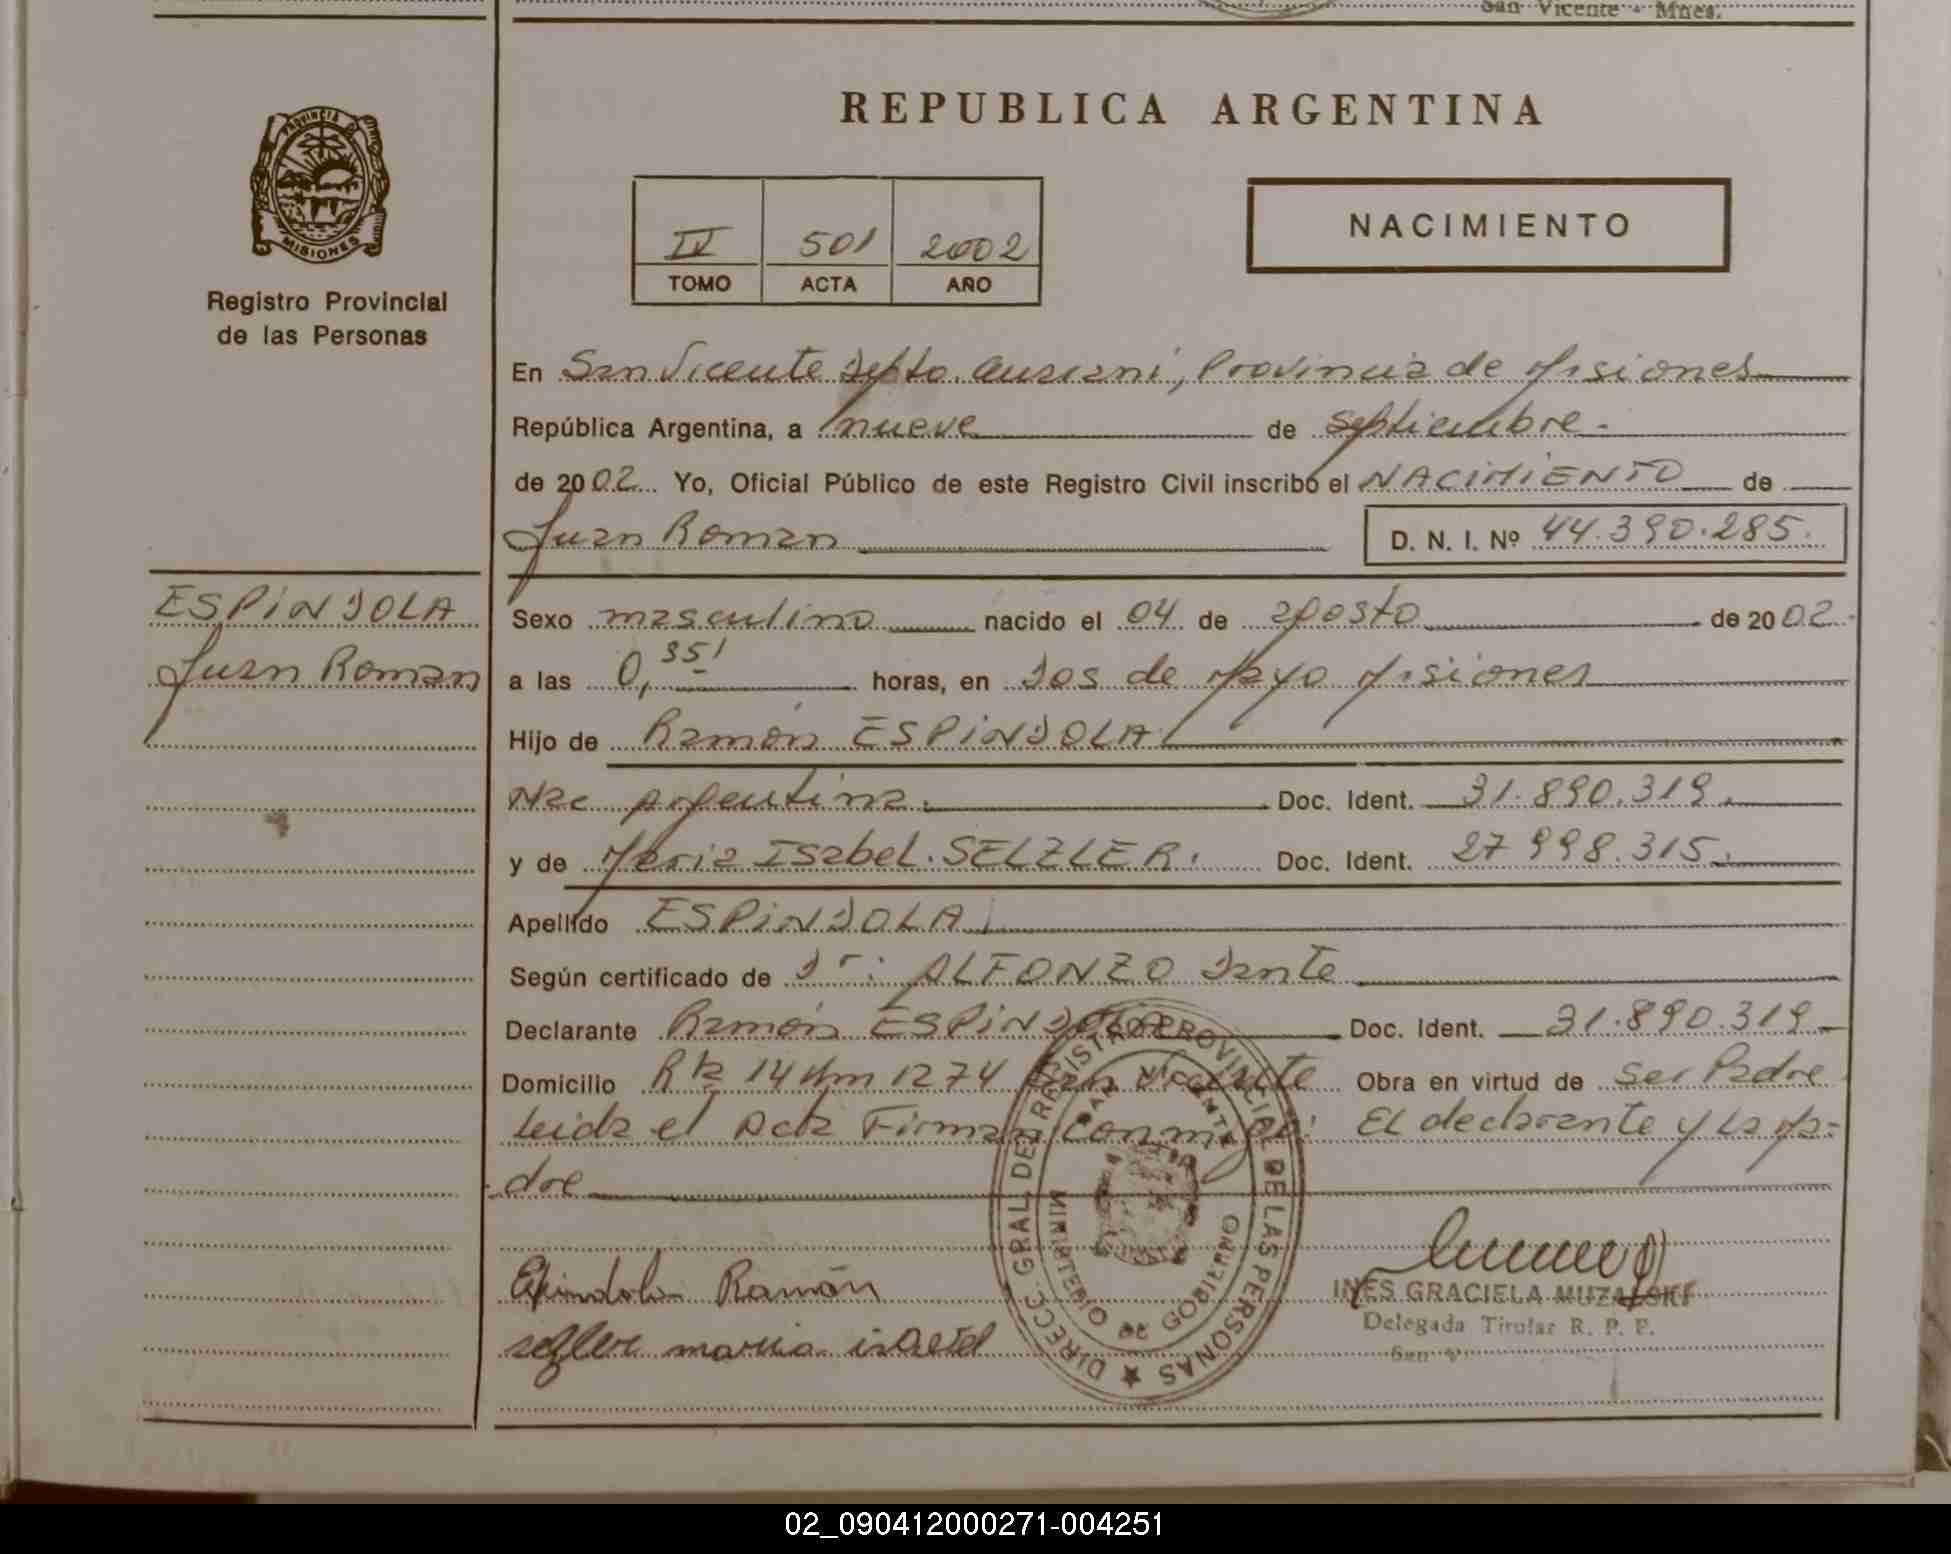 San Vicente - Mnes.
REPUBLICA ARGENTINA
PROVINCIA DE
MISIONES
Registro Provincial
de las Personas
IV 501 2002
TOMO ACTA AÑO
NACIMIENTO
En San Vicente Depto. Guarani, Provincia de Misiones
República Argentina, a nueve de septiembre.
de 2002 Yo, Oficial Público de este Registro Civil inscribo el NACIMIENTO de
Juan Roman D. N. I. Nº 44.390.285.
ESPINDOLA
Juan Roman
Sexo masculino nacido el 04 de agosto de 2002.
a las 0,35' horas, en Dos de Mayo Misiones
Hijo de Ramón ESPINDOLA
Nac argentina. Doc. Ident. 31.890.319.
y de Maria Isabel. SELZLER. Doc. Ident. 27.998.315.
Apellido ESPINDOLA
Según certificado de Dr: ALFONZO Dante
Declarante Ramón ESPINDOLA Doc. Ident. 31.890.319
Domicilio Rta 14 Km 1274 San Vicente Obra en virtud de ser Padre
Leida el Acta Firman conmigo: El declarante y la Ma-
dre
DIRECC. GRAL. DE REGISTRO PROVINCIAL DE LAS PERSONAS
SAN VICENTE
MINISTERIO DE GOBIERNO
Espindola Ramón
selzler maria isabel
INES GRACIELA MUZALSKI
Delegada Titular R. P. P.
San V
02_090412000271-004251